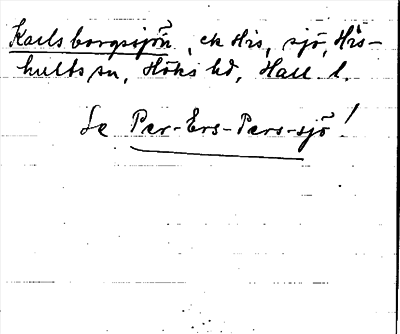 Karlsborgssjön, ek His, sjö, His-
hults sn, Höks hd, Hall l.
Se Per-Ers-Pers-sjö!